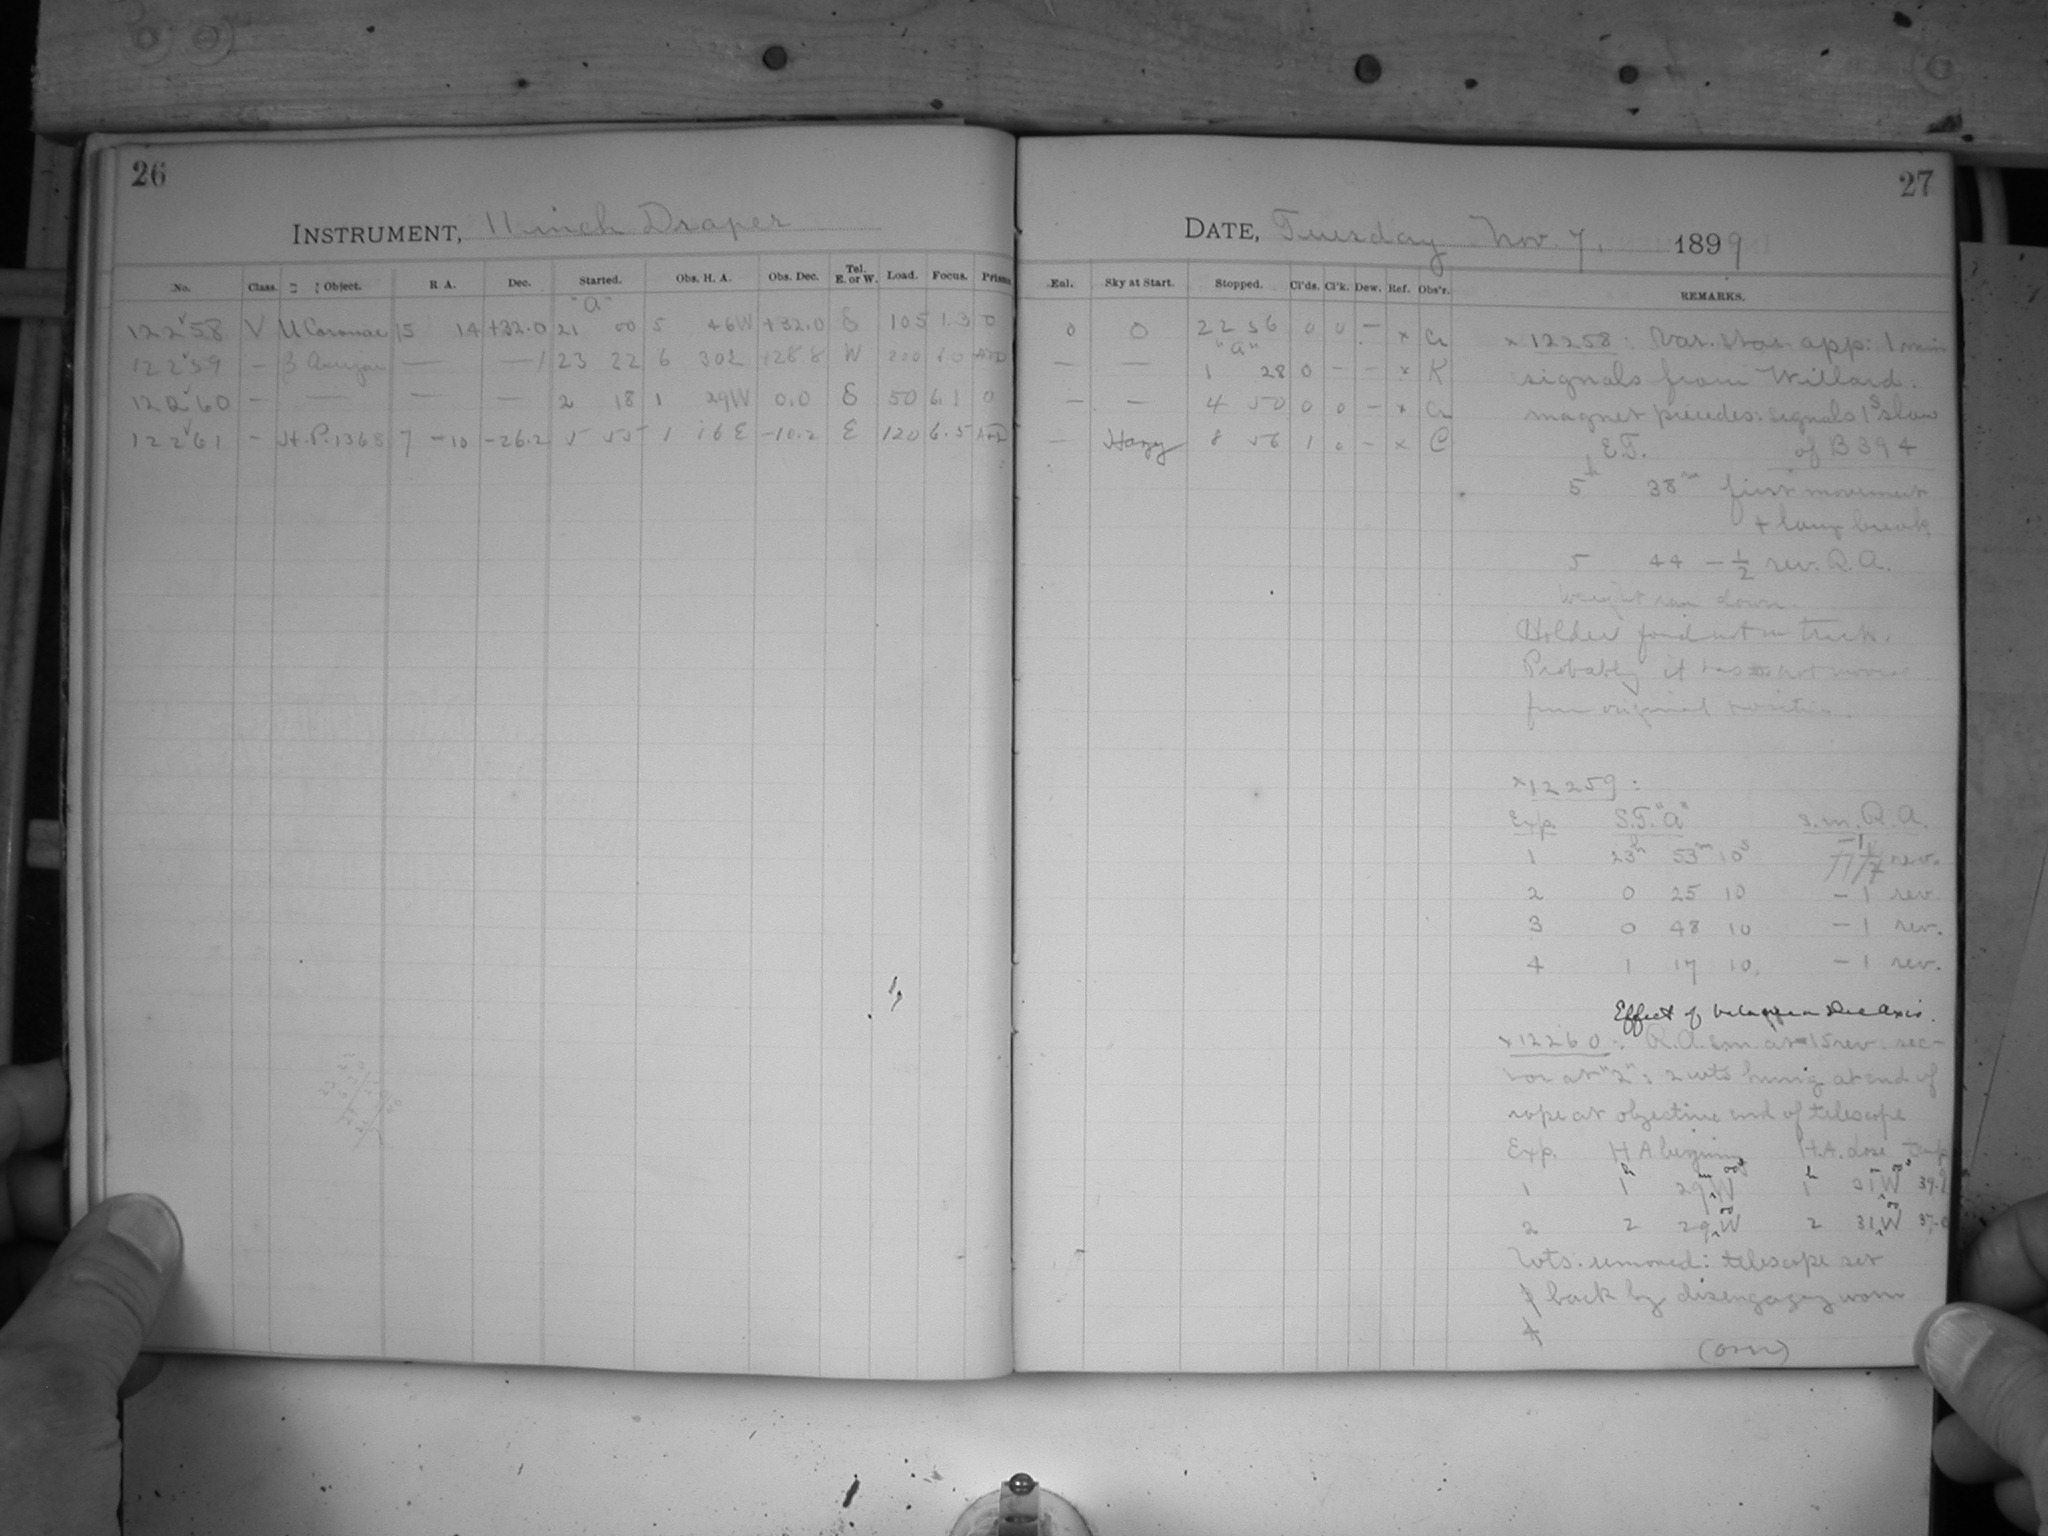 26
INSTRUMENT, 11 inch Draper
No. Class. Object. R. A. Dec. Started. Obs. H. A. Obs. Dec. Tel. E. or W. Load. Focus. Prisms
"a"
12258 V U Coronae 15 14 +32.0 21 00 5 46W +32.0 E 105 1.3 0
12259 — β Aurigae — — 23 22 6 30E +28.8 W 200
12260 — — — — 2 18 1 29W 0.0 E 50 6.1 0
12261 — H.P. 1368 7 -10 -26.2 5 55 1 16E -10.2 E 120 6.5
27
DATE, Tuesday Nov. 7, 1899
Enl. Sky at Start. Stopped. Cl'ds. Cl'k. Dew. Ref. Obs'r. REMARKS.
0 0 22 56 0 0 — x Cr
"a"
— — 1 28 0 — — x K
— — 4 50 0 0 — x Cr
— Hazy 8 56 1 0 — x C
x 12258: Var. star app: 1 min
signals from Willard.
magnet precedes: signals 1s slow
E.T. of B 394
5h 38m first movement
+ long break
5 44 — ½ rev. R.A.
Weight ran down.
Holder found not on track.
Probably it has not moved
from original position.
x 12259:
Exp. S.T. "a" s.m. R.A.
1 23h 53m 10s rev.
2 0 25 10 — 1 rev.
3 0 48 10 — 1 rev.
4 1 17 10 — 1 rev.
Effect of on Dec Axis.
x 12260: R.A. s.m. at 15 rev. sec-
tor at "2": 2 wts hung at end of
rope at objective end of telescope
Exp. H A begining H.A. close Temp
1 1h 29m W 1h 31m W 39.
2 2 29 W 2 31 W 37.
Wts. removed: telescope set
back by disengaging worm
(over)